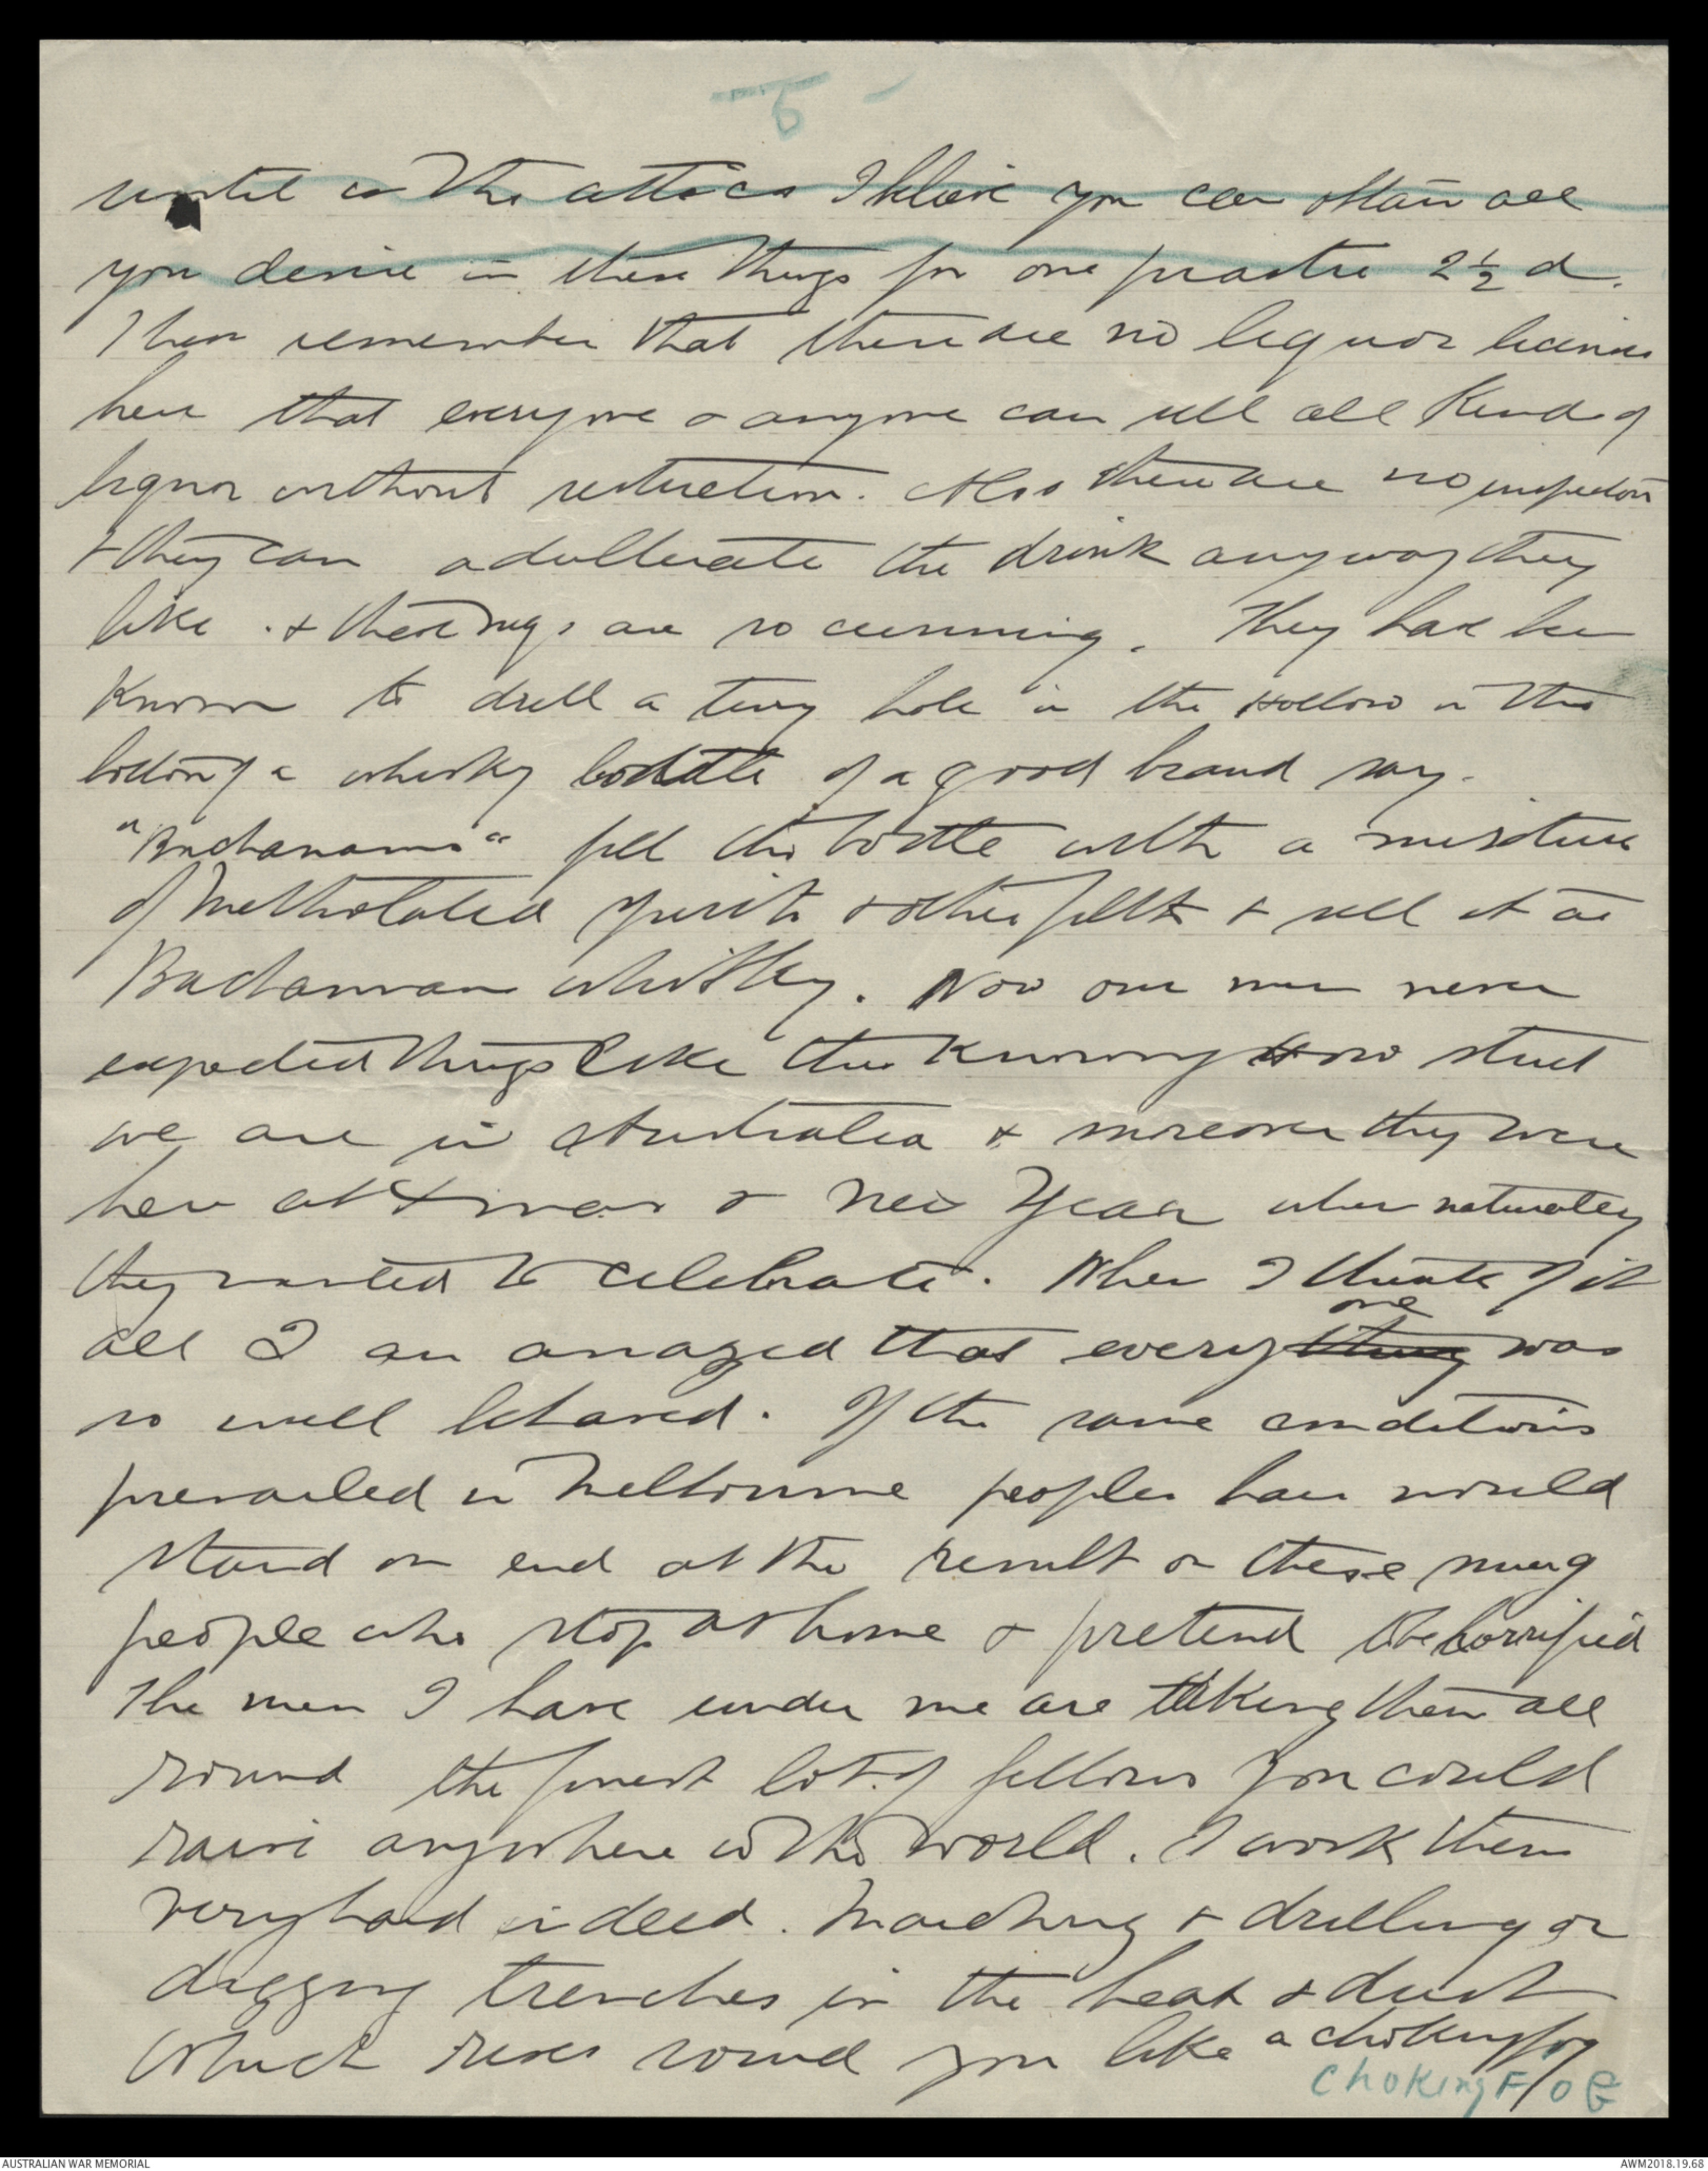 - 6 -
until in the attics I believe you can obtain all
you desire in these things for one piastre 2½ d.
Then remember that there are no liquor licenses
here that everyone & anyone can sell all kind of
liquor without restriction. Also there are no inspectors
& they can adulterate the drink anyway they
like . & these are so cunning. They have been
known to drill a tiny hole in the hollow in the
bottom of a whisky bottle of a good brand say.
"Buchanans" fill the bottle with a mixture
of Metholated spirits & other filth & sell it as
Buchannan whisky. Now our men never
expected things like this knowing how strict
we are in Australia & moreover they were
here at Xmas & New Year when naturally
they wanted to celebrate. When I think of it
all I am amazed that everything one was
so well behaved. If the same conditions
prevailed in Melbourne peoples hair would
stand on end at the result on these smug
people who stop at home & pretend to be horrified
The men I have under me are taking them all
round the finest lot of fellows you could
raise anywhere in the world. I work them
very hard indeed. Marching & drilling or
digging trenches in the heat & dust
which rises round you like a choking fog
choking FOG
AUSTRALIAN WAR MEMORIAL
AWM2018.19.68